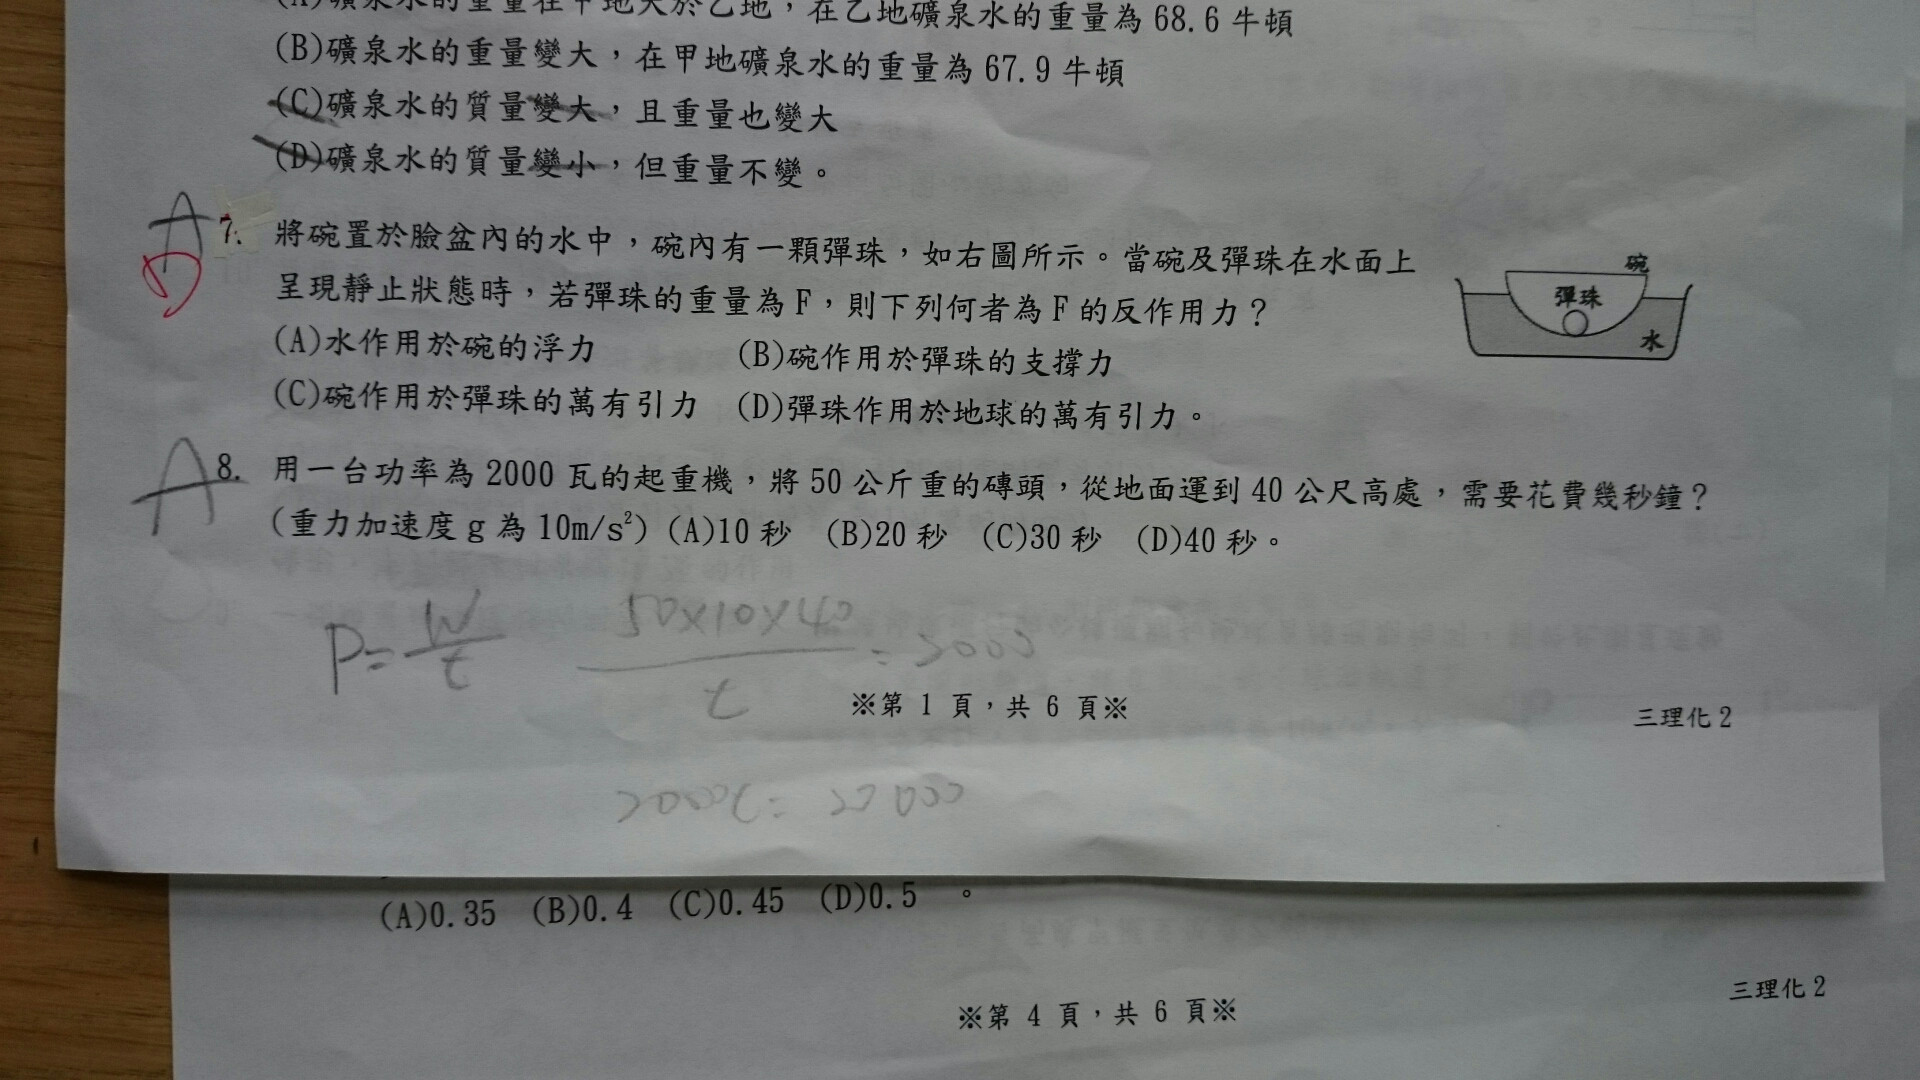 (A)礦泉水的重量在甲地大於乙地，在乙地礦泉水的重量為68.6牛頓
(B)礦泉水的重量變大，在甲地礦泉水的重量為67.9牛頓
(C)礦泉水的質量變大，且重量也變大
(D)礦泉水的質量變小，但重量不變。
A
D
7. 將碗置於臉盆內的水中，碗內有一顆彈珠，如右圖所示。當碗及彈珠在水面上
呈現靜止狀態時，若彈珠的重量為F，則下列何者為F的反作用力？
(A)水作用於碗的浮力 (B)碗作用於彈珠的支撐力
(C)碗作用於彈珠的萬有引力 (D)彈珠作用於地球的萬有引力。
碗
彈珠
水
A
8. 用一台功率為2000瓦的起重機，將50公斤重的磚頭，從地面運到40公尺高處，需要花費幾秒鐘？
(重力加速度g為10m/s²) (A)10秒 (B)20秒 (C)30秒 (D)40秒。
P=W/t 50×10×40/t =2000
※第 1 頁，共 6 頁※
三理化2
2000t= 20000
(A)0.35 (B)0.4 (C)0.45 (D)0.5 。
三理化2
※第 4 頁，共 6 頁※